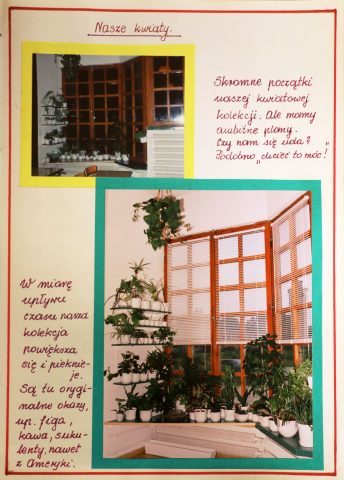 Nasze kwiaty.
Skromne początki
naszej kwiatowej
kolekcji. Ale mamy
ambitne plany.
Czy nam się uda?
Podobno „chcieć to móc!"
W miarę
upływu
czasu nasza
kolekcja
powiększa
się i pięknie-
je.
Są tu orygi-
nalne okazy,
np. figa,
kawa, suku-
lenty, nawet
z Ameryki.